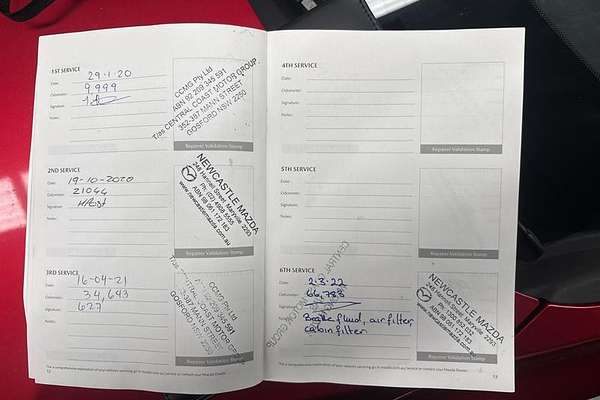 1ST SERVICE
Date: 29.1.20
Odometer: 9,999
Signature:
Notes:
CCMG Pty Ltd
ABN 92 269 345 591
T/as CENTRAL COAST MOTOR GROUP
352-387 MANN STREET
GOSFORD NSW 2250
Repairer Validation Stamp
2ND SERVICE
Date: 19-10-2020
Odometer: 21044
Signature:
Notes:
NEWCASTLE MAZDA
248 Hannell Street, Maryville 2293
ABN 98 061 172 183
www.newcastlemazda.com.au
Repairer Validation Stamp
3RD SERVICE
Date: 16-04-21
Odometer: 34,643
Signature: 627
Notes:
CCMG Pty Ltd
CENTRAL COAST MOTOR GROUP
MANN STREET
GOSFORD NSW 2250
Repairer Validation Stamp
12
4TH SERVICE
Date:
Odometer:
Signature:
Notes:
Repairer Validation Stamp
5TH SERVICE
Date:
Odometer:
Signature:
Notes:
Repairer Validation Stamp
CENTRAL
6TH SERVICE
Date: 2.3.22
Odometer: 66,783
Signature:
Notes: Brake fluid, air filter,
cabin filter
NEWCASTLE MAZDA
248 Hannell Street, Maryville 2293
ABN 98 061 172 183
Repairer Validation Stamp
13